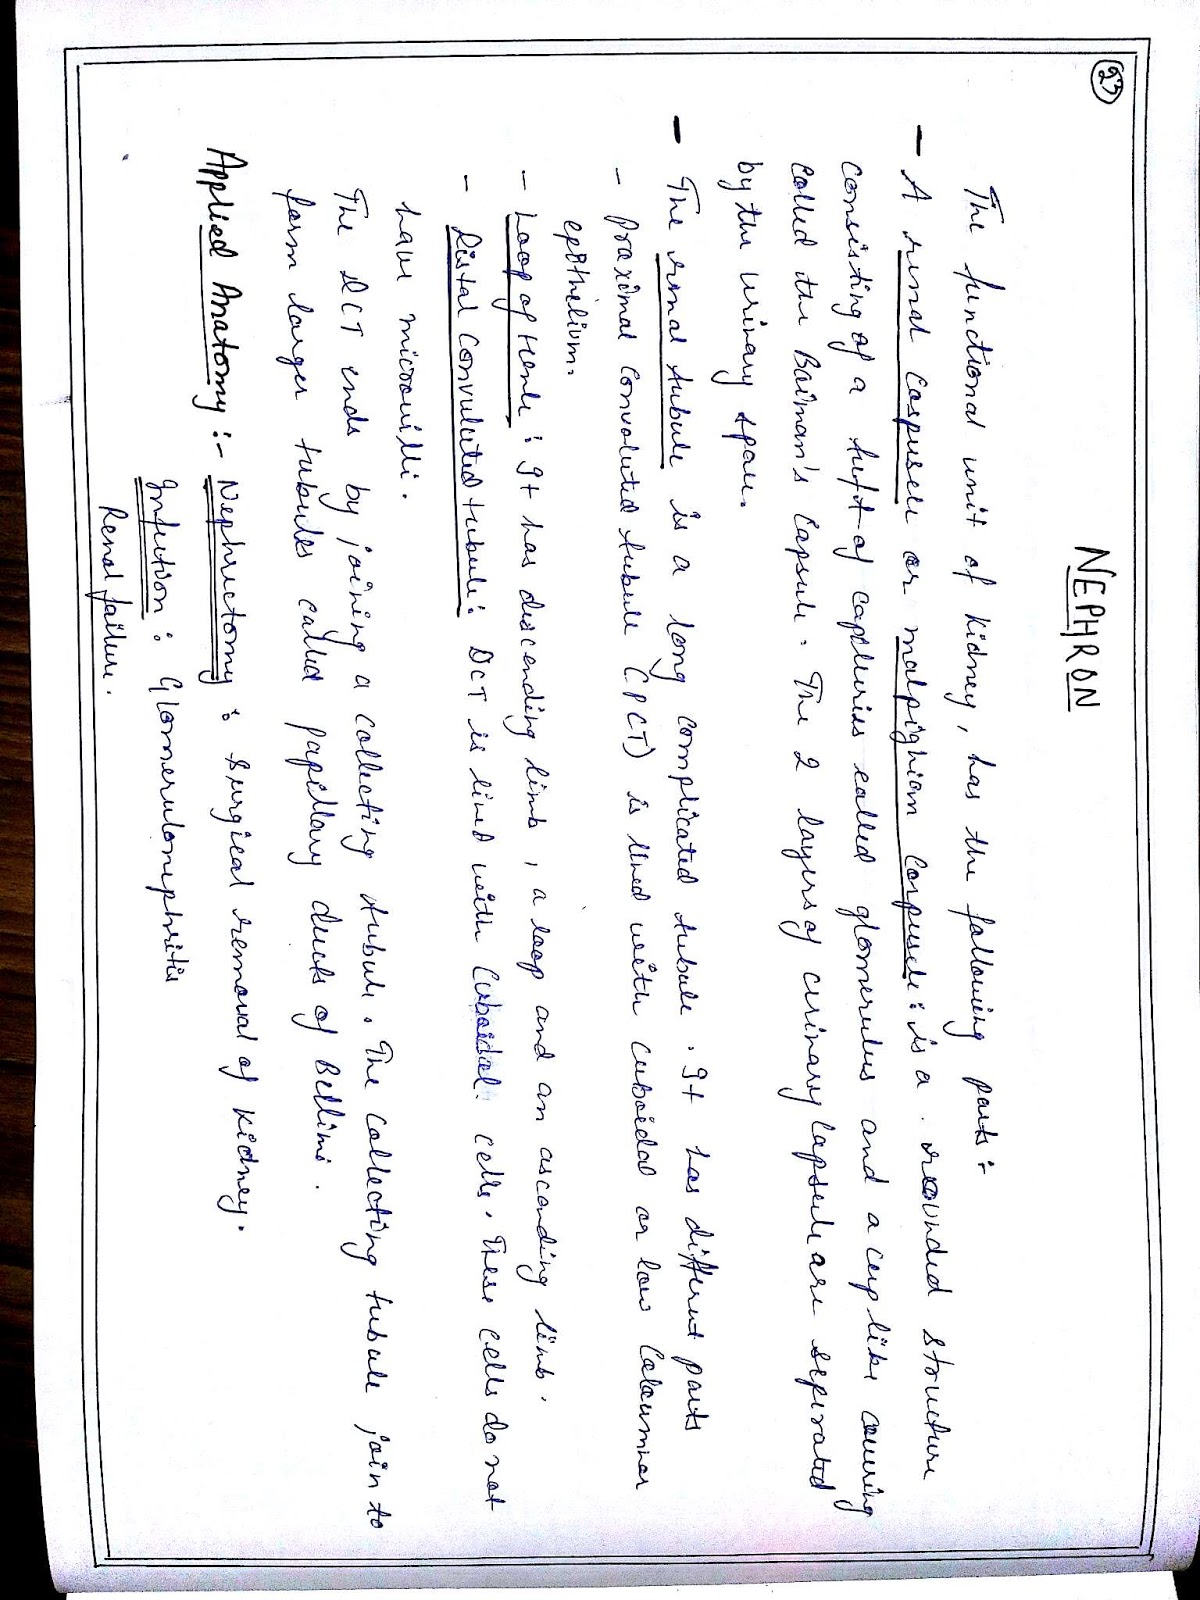 23
NEPHRON
The functional unit of kidney, has the following parts:-
- A renal corpuscle or malpighian corpuscle: is a rounded structure
consisting of a tuft of capillaries called glomerulus and a cup like covering
called the Baiman's capsule. The 2 layers of urinary capsule are seperated
by the urinary space.
- The renal tubule is a long complicated tubule. It has different parts
- Proximal convoluted tubule (PCT) is lined with cuboidal or low columnar
epithelium.
- Loop of Henle: It has descending limb, a loop and an ascending limb.
- Distal Convuluted tubule: DCT is lined with Cuboidal cells. These cells do not
have microvilli.
The DCT ends by joining a collecting tubule. The collecting tubule join to
form larger tubules called papillary ducts of Bellini.
Applied Anatomy:- Nephrectomy: Surgical removal of kidney.
Infection: Glomerulonephritis
Renal failure.